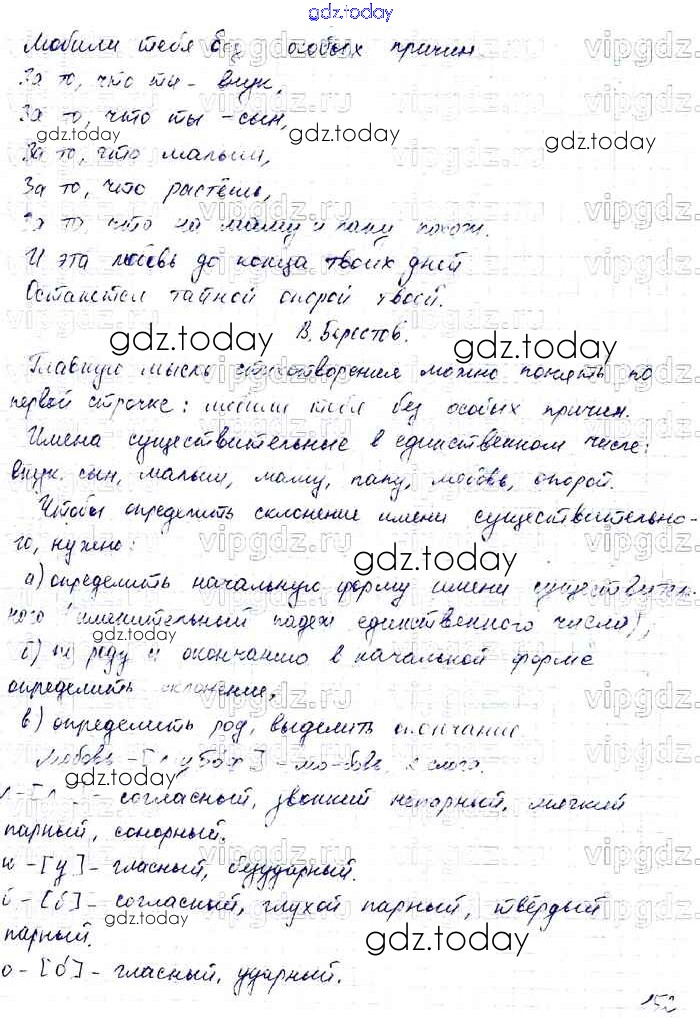 gdz.today
Любили тебя без особых причин
За то, что ты - внук,
За то, что ты - сын,
За то, что малыш,
За то, что растёшь,
За то, что на маму и папу похож.
И эта любовь до конца твоих дней
Останется тайной опорой твоей.
В. Берестов.
Главную мысль стихотворения можно понять по
первой строчке: любили тебя без особых причин.
Имена существительные в единственном числе:
внук, сын, малыш, маму, папу, любовь, опорой.
Чтобы определить склонение имени существительно-
го, нужно:
а) определить начальную форму имени существитель-
ного (именительный падеж единственного числа);
б) по роду и окончанию в начальной форме
определить склонение,
в) определить род, выделить окончание
Любовь - - лю-бовь, 2 слога.
л - [л'] - согласный, звонкий непарный, мягкий
парный, сонорный.
ю - [у] - гласный, безударный.
б - [б] - согласный, глухой парный, твёрдый
парный.
о - [о́] - гласный, ударный.
152